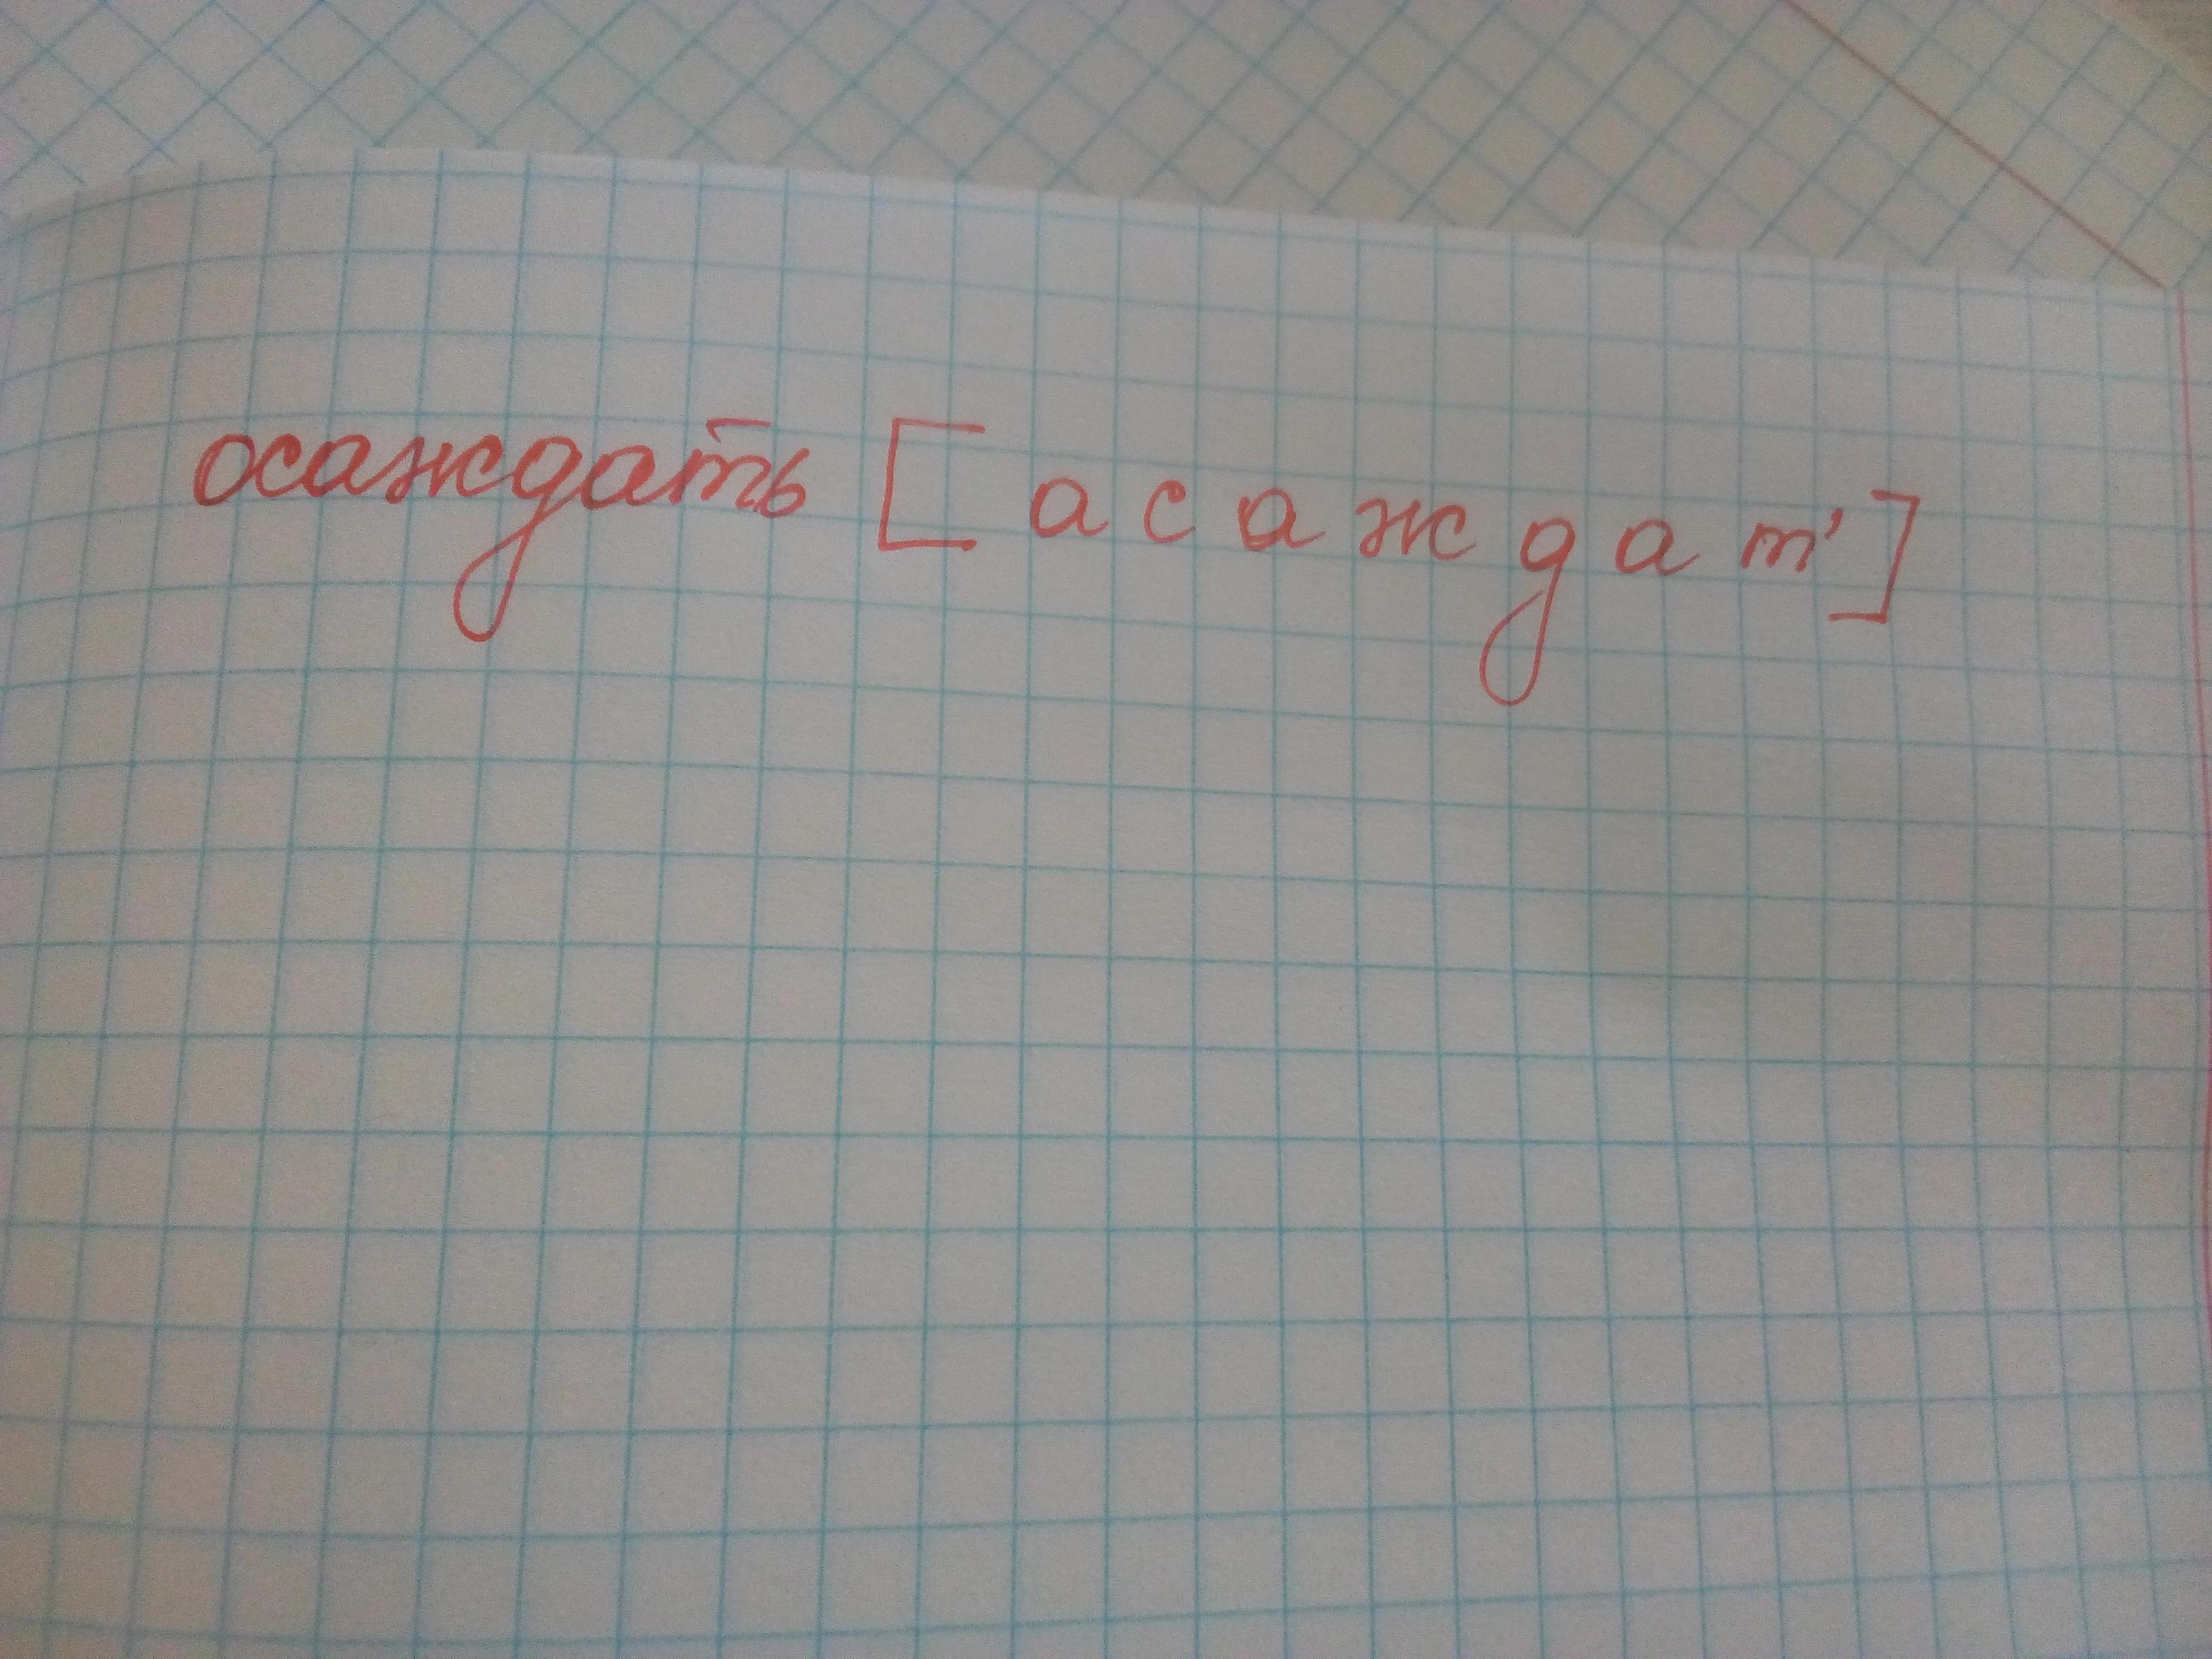 осаждать [асаждат']